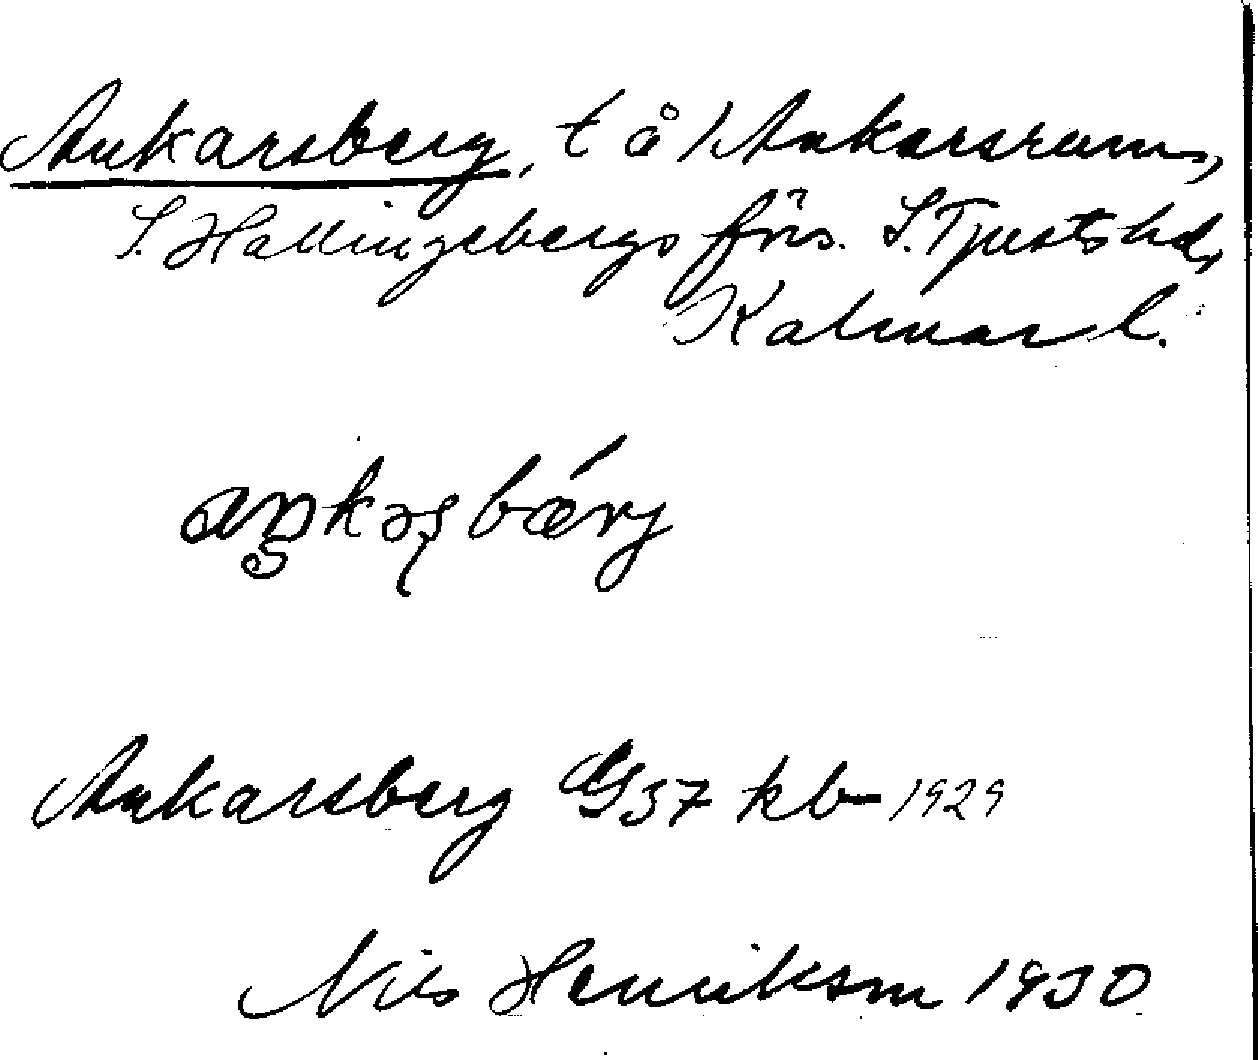 Ankarsberg, t å / Ankarsrum,
S. Hallingebergsförs. S. Tjusts hd,
Kalmar l.
aŋkəʂbǽrj
Ankarsberg G37 kb 1929
Nils Henrikson 1930